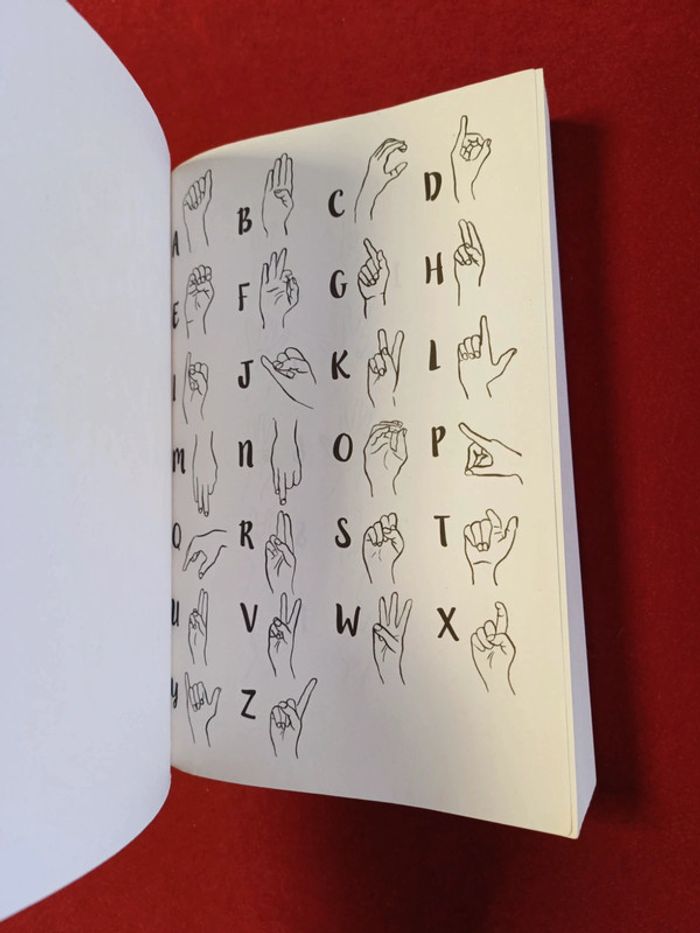 A B C D
E F G H
I J K L
M N O P
Q R S T
U V W X
Y Z